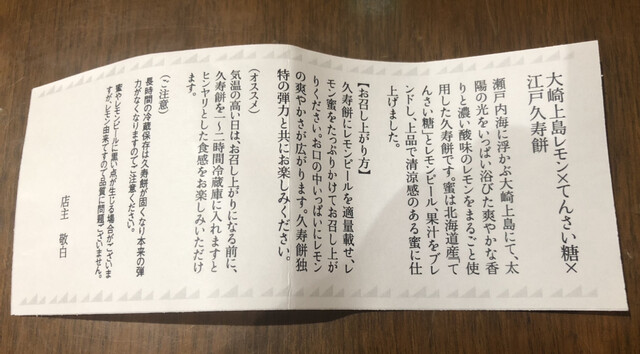 大崎上島レモン×てんさい糖×
江戸久寿餅
瀬戸内海に浮かぶ大崎上島にて、太
陽の光をいっぱい浴びた爽やかな香
りと濃い酸味のレモンをまるごと使
用した久寿餅です。蜜は北海道産「て
んさい糖」とレモンピール、果汁をブレ
ンドし、上品で清涼感のある蜜に仕
上げました。
【お召し上がり方】
久寿餅にレモンピールを適量載せ、レ
モン蜜をたっぷりかけてお召し上が
りください。お口の中いっぱいにレモン
の爽やかさが広がります。久寿餅独
特の弾力と共にお楽しみください。
（オススメ）
気温の高い日は、お召し上がりになる前に、
久寿餅を一〜二時間冷蔵庫に入れますと
ヒンヤリとした食感をお楽しみいただけ
ます。
（ご注意）
長時間の冷蔵保存は久寿餅が固くなり本来の弾
力がなくなりますのでご注意ください。
蜜やレモンピールに黒い点が生じる場合がございま
すが、レモン由来ですので品質に問題ございません。
店主 敬白